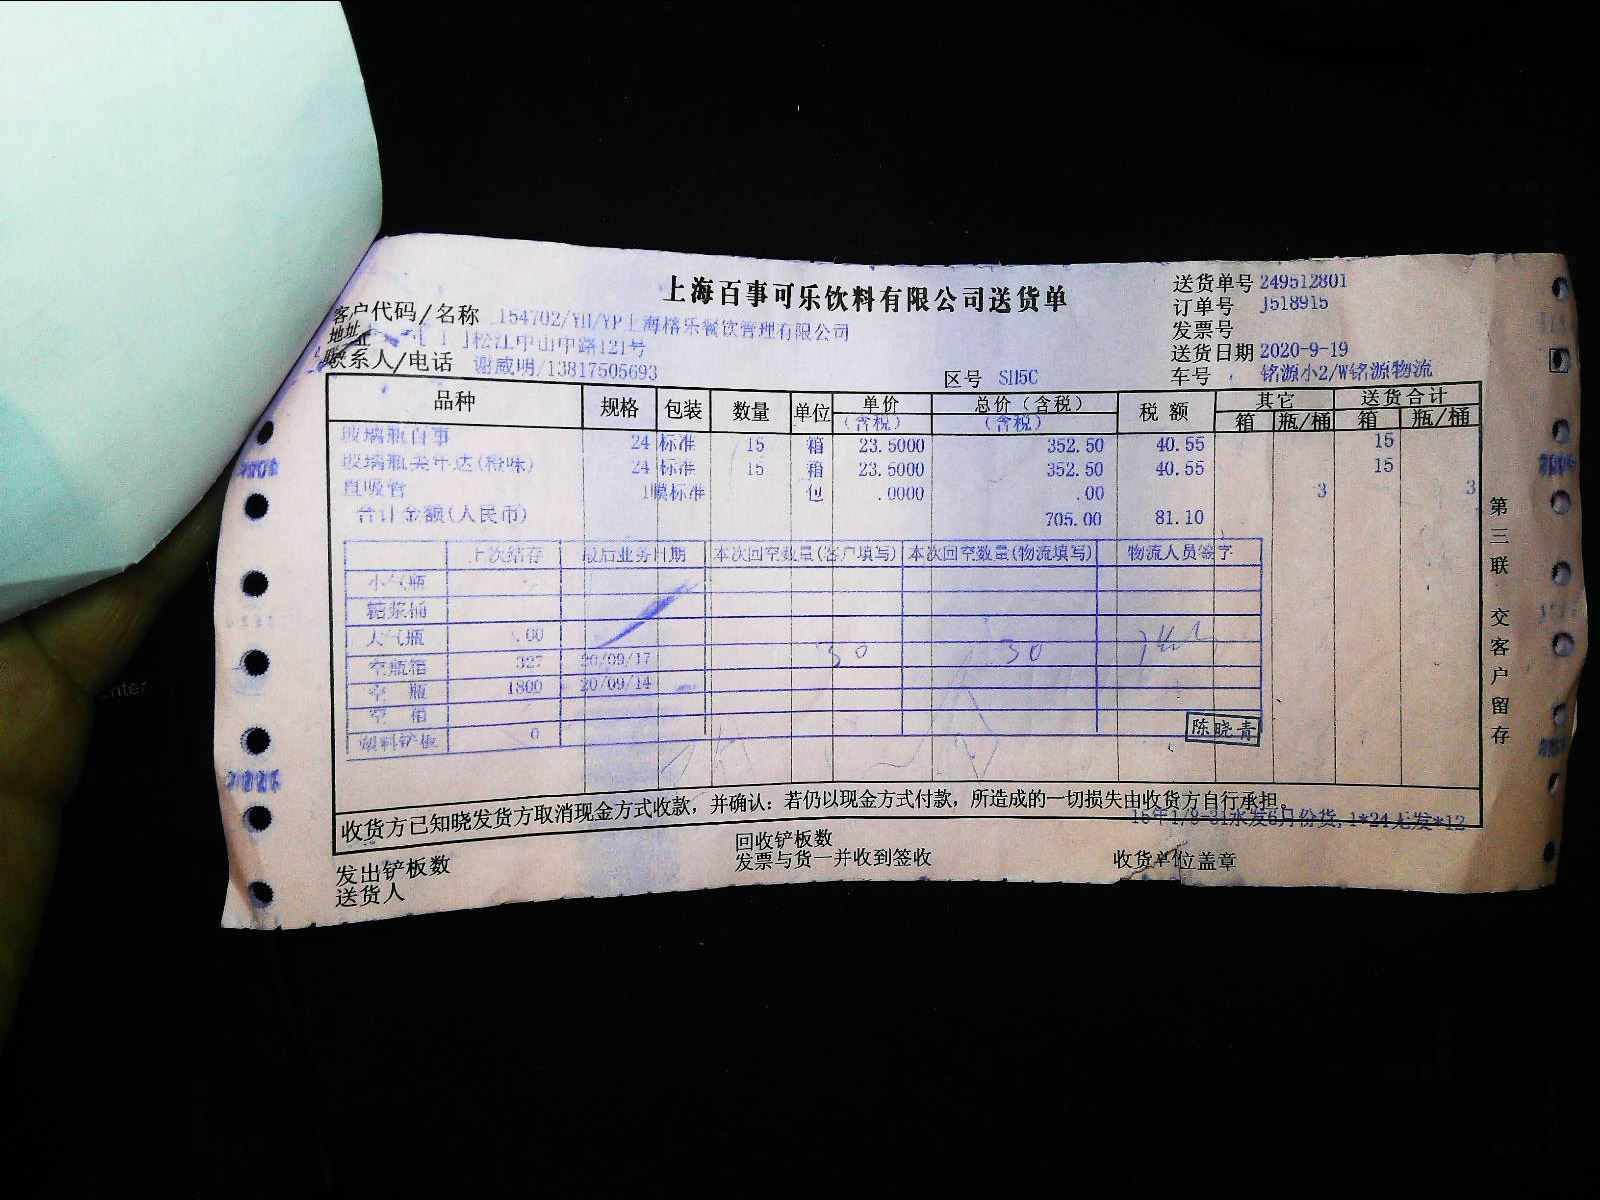 上海百事可乐饮料有限公司送货单
送货单号 249512801
订单号 J518915
发票号
送货日期 2020-9-19
车号 铭源小2/W铭源物流
客户代码/名称 154702/YH/YP上海榕乐餐饮管理有限公司
地址 松江中山中路121号
联系人/电话 谢威明/13817505693
区号 SH5C
品种 规格 包装 数量 单位 单价(含税) 总价(含税) 税额 其它 箱 瓶/桶 送货合计 箱 瓶/桶
玻璃瓶百事 24 标准 15 箱 23.5000 352.50 40.55 15
玻璃瓶美年达(橙味) 24 标准 15 箱 23.5000 352.50 40.55 15
直吸管 标准 包 .0000 .00 3 3
合计金额(人民币) 705.00 81.10
上次结存 最后业务日期 本次回空数量(客户填写) 本次回空数量(物流填写) 物流人员签字
小气瓶
糖浆桶
大气瓶 .00
空瓶箱 327 20/09/17 30 30
空瓶 1800 20/09/14
空箱
塑料铲板 0
陈晓青
收货方已知晓发货方取消现金方式收款，并确认：若仍以现金方式付款，所造成的一切损失由收货方自行承担。
16年1/8-31水发6月份货,1*24无发*12
发出铲板数
回收铲板数
送货人
发票与货一并收到签收
收货单位盖章
第三联 交客户留存